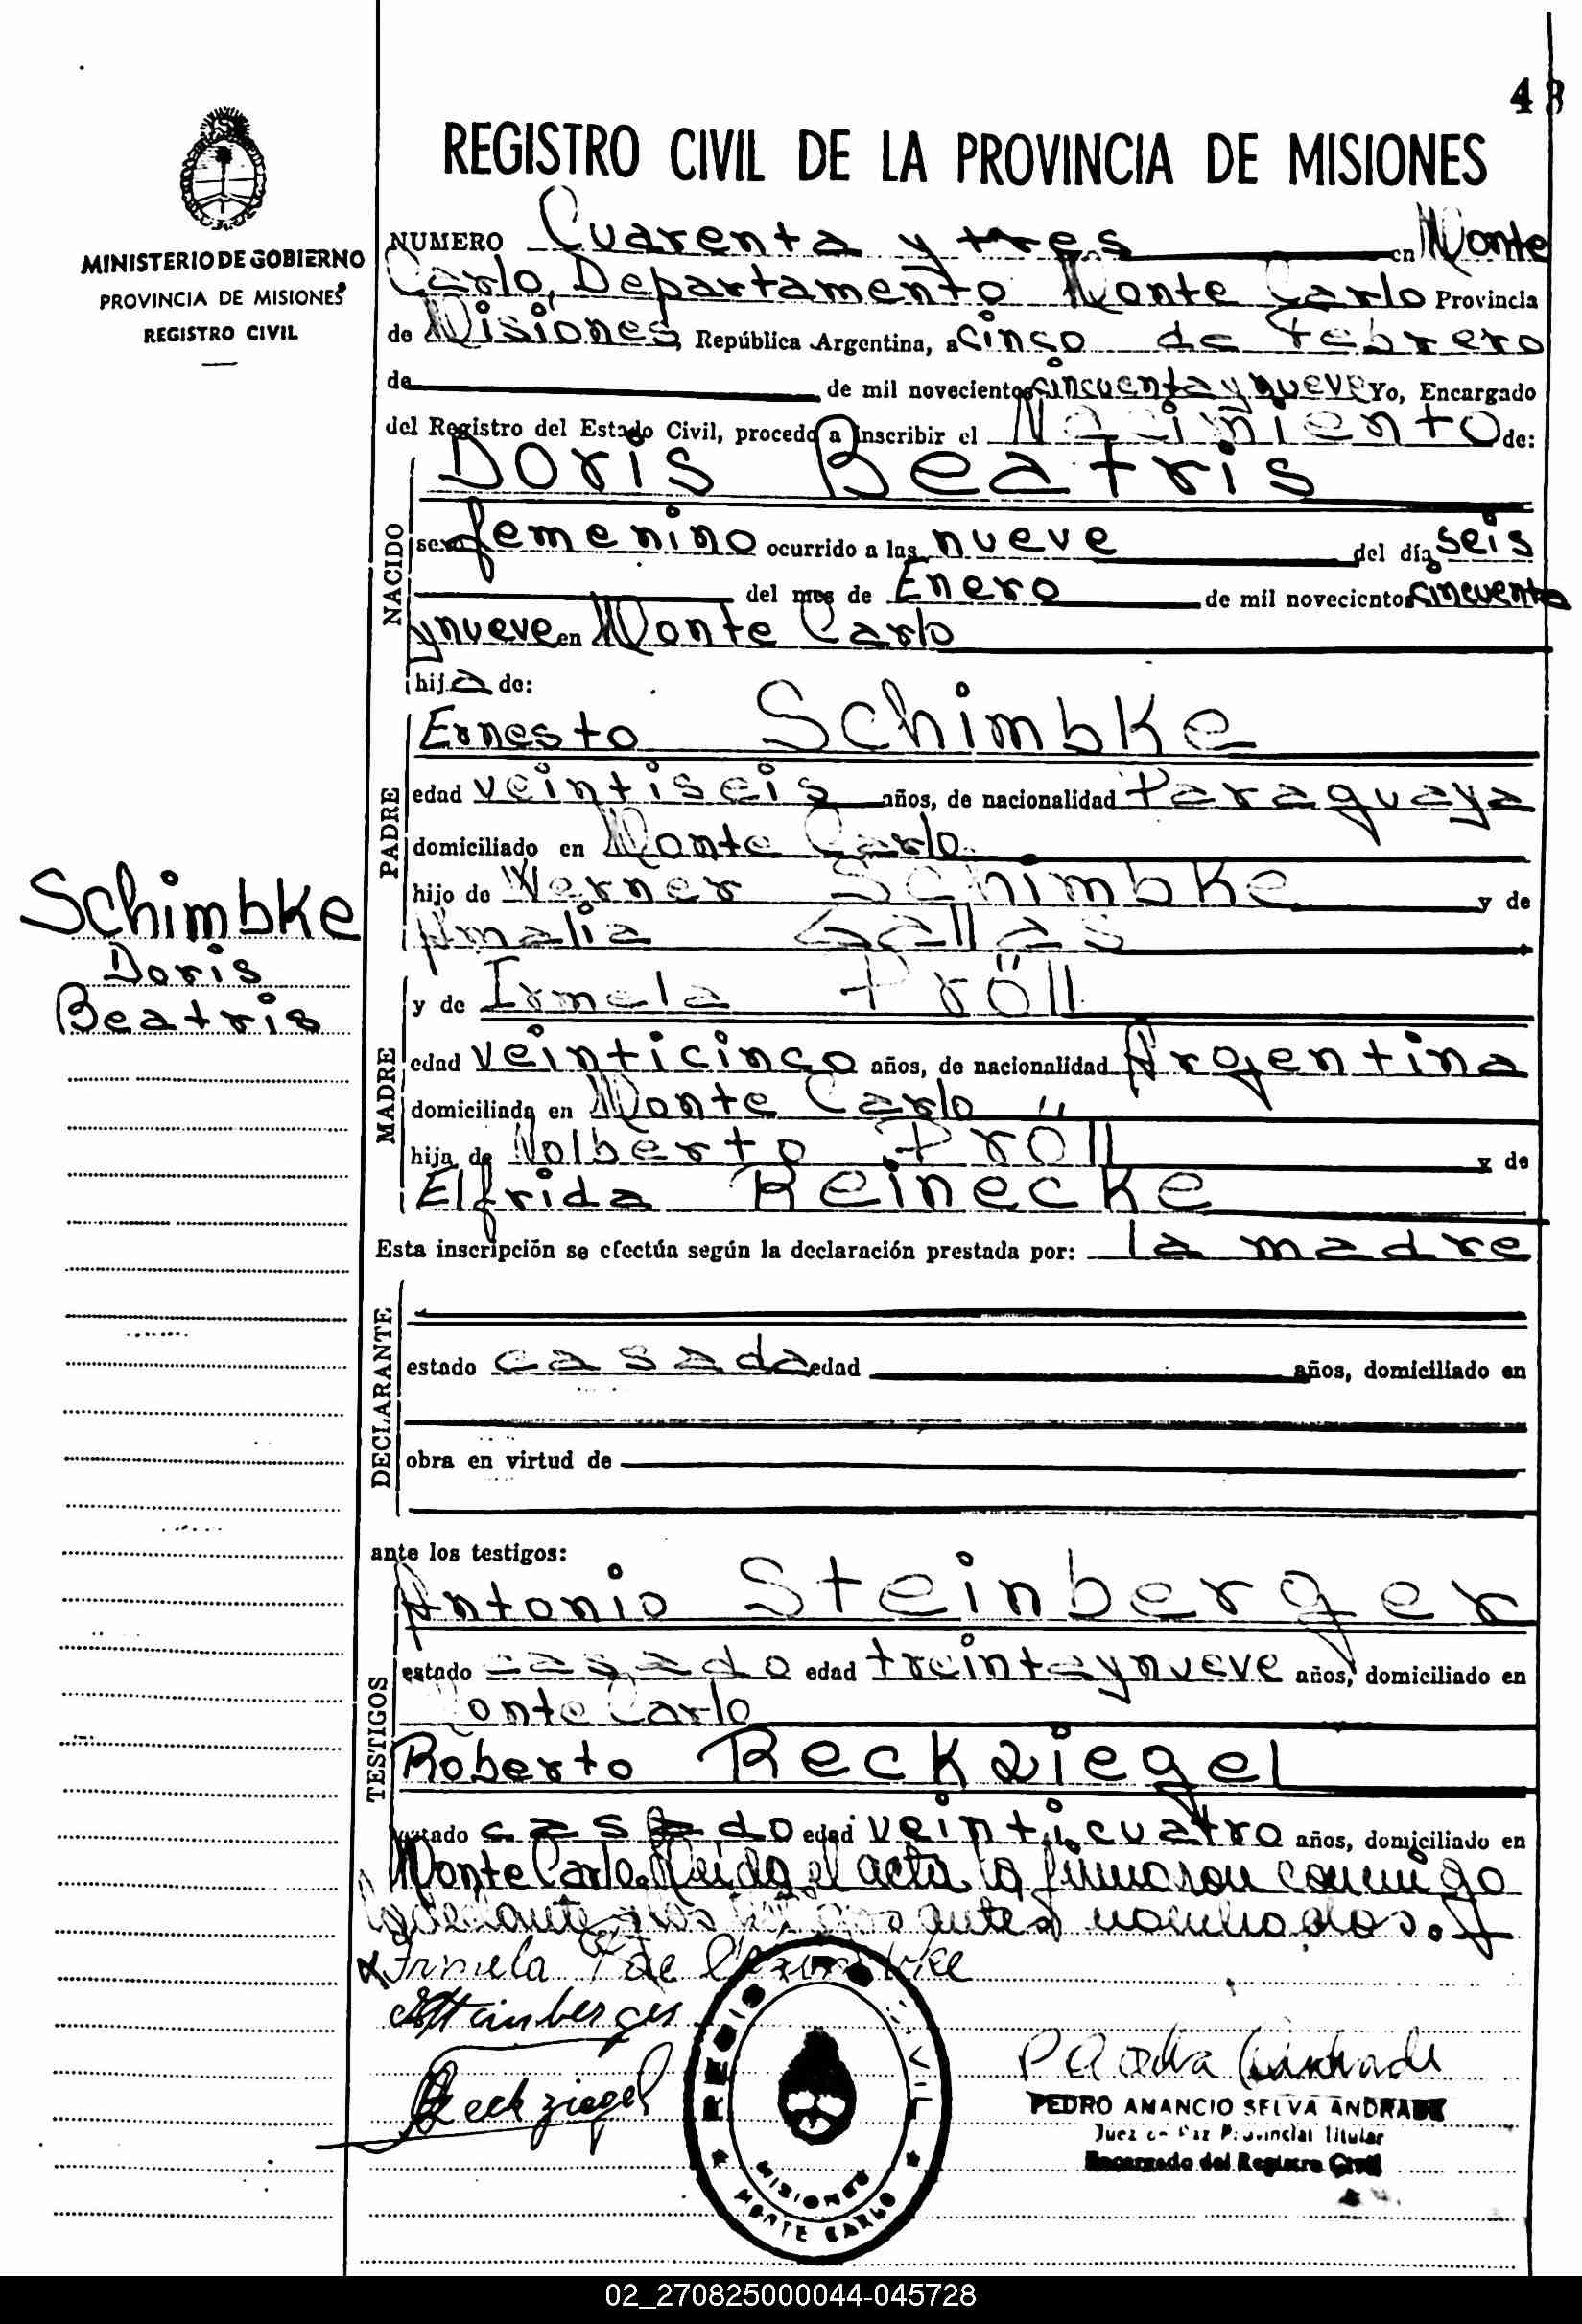 43
REGISTRO CIVIL DE LA PROVINCIA DE MISIONES
MINISTERIO DE GOBIERNO
PROVINCIA DE MISIONES
REGISTRO CIVIL
NUMERO Cuarenta y tres en Monte
Carlo, Departamento Monte Carlo Provincia
de Misiones, República Argentina, a cinco de Febrero
de de mil novecientos cincuenta y nueve Yo, Encargado
del Registro del Estado Civil, procedo a inscribir el Nacimiento de:
NACIDO
Doris Beatris
sexo femenino ocurrido a las nueve del día seis
del mes de Enero de mil novecientos cincuenta
y nueve en Monte Carlo
hija de:
PADRE
Ernesto Schimbke
edad veintiseis años, de nacionalidad Paraguaya
domiciliado en Monte Carlo
hijo de Werner Schimbke y de
Amalia Gallas
Schimbke
Doris
Beatris
MADRE
y de Irmela Pröll
edad veinticinco años, de nacionalidad Argentina
domiciliada en Monte Carlo
hija de Nolberto Pröll y de
Elfrida Reinecke
Esta inscripción se efectúa según la declaración prestada por: la madre
DECLARANTE
estado casada edad años, domiciliado en
obra en virtud de
ante los testigos:
TESTIGOS
Antonio Steinberger
estado casado edad treinta y nueve años, domiciliado en
Monte Carlo
Roberto Reckziegel
estado casado edad veinticuatro años, domiciliado en
Monte Carlo. Leida el acta la firmaron conmigo
la declarante y los testigos antes nombrados.
Irmela P. de Schimbke
Steinberger
Reckziegel
REGISTRO CIVIL
MISIONES
MONTE CARLO
PEDRO AMANCIO SELVA ANDRADE
Juez de Paz Provincial Titular
Encargado del Registro Civil
02_270825000044-045728